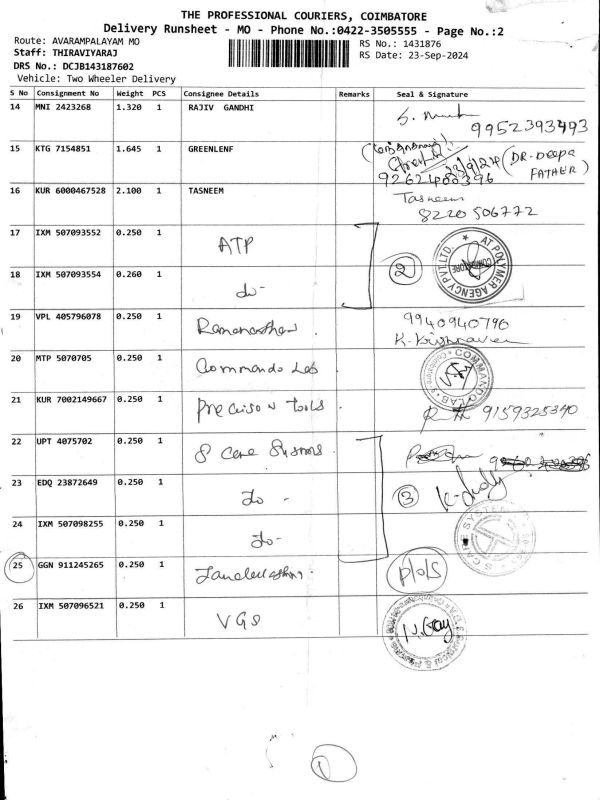 THE PROFESSIONAL COURIERS, COIMBATORE
Delivery Runsheet - MO - Phone No.:0422-3505555 - Page No.:2
Route: AVARAMPALAYAM MO RS No.: 1431876
Staff: THIRAVIYARAJ RS Date: 23-Sep-2024
DRS No.: DCJB143187602
Vehicle: Two Wheeler Delivery
S No Consignment No Weight PCS Consignee Details Remarks Seal & Signature
14 MNI 2423268 1.320 1 RAJIV GANDHI
9952393493
15 KTG 7154851 1.645 1 GREENLENF
23/9/24 (DR. Deepa
FATHER)
16 KUR 6000467528 2.100 1 TASNEEM Tasneem
8220 506772
17 IXM 507093552 0.250 1 ATP
AT POLYMER AGENCY PVT LTD. COIMBATORE
18 IXM 507093554 0.260 1 do- 2
19 VPL 405796078 0.250 1 9940940790
20 MTP 5070705 0.250 1 Commando Lab
COMMANDO LAB
21 KUR 7002149667 0.250 1 Precison tools 9159325340
22 UPT 4075702 0.250 1 S Care Systems
23 EDQ 23872649 0.250 1 do - 3
24 IXM 507098255 0.250 1 do-
25 GGN 911245265 0.250 1
26 IXM 507096521 0.250 1 VGS
1